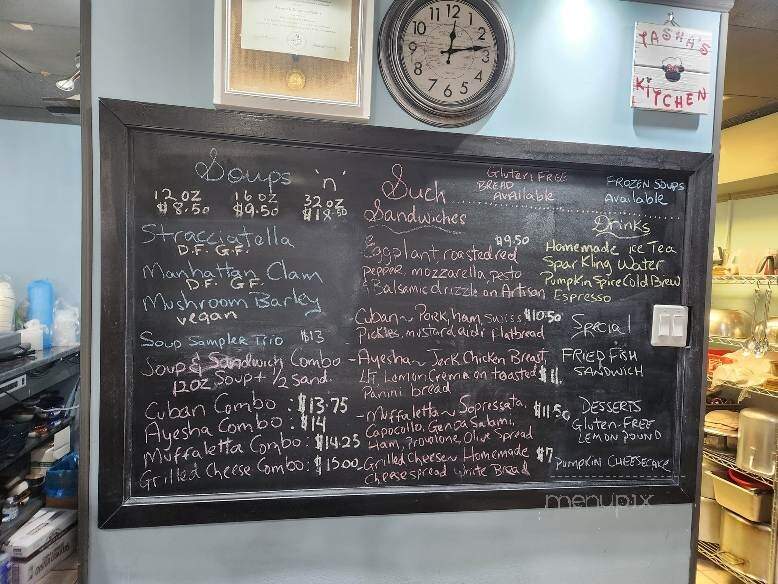 12
11
1
10
2
9
3
8
4
7
5
6
TASHA'S
KITCHEN
Soups 'n'
12 OZ 16 OZ 32 OZ
$8.50 $9.50 $18.50
Stracciatella
D.F. G.F.
Manhattan Clam
D.F. G.F.
Mushroom Barley
vegan
Soup Sampler Trio $13
Soup & Sandwich Combo -
12OZ Soup + 1/2 Sand.
Cuban Combo : $13.75
Ayesha Combo : $14
Muffaletta Combo : $14.25
Grilled Cheese Combo:
Such
Sandwiches
$9.50
Eggplant roasted red
pepper, mozzarella, pesto
& Balsamic drizzle on Artisan
Cuban~ Pork, ham, swiss $10.50
Pickles, mustard aioli flatbread
Ayesha~ Jerk Chicken Breast
LT, Lemon Crema on toasted $11
Panini bread
- Muffaletta~ Sopressata, $11.50
Capocollo, Genoa Salami,
Ham, Provolone, Olive Spread
Grilled Cheese~ Homemade $7
Cheesespread White Bread
Gluten FREE
BREAD
Available
FROZEN SOUPS
Available
Drinks
Homemade ice Tea
Sparkling Water
Pumpkin Spice Cold Brew
Espresso
Special
FRIED FISH
SANDWICH
DESSERTS
Gluten-FREE
LEMON POUND
PUMPKIN CHEESECAKE
menupix